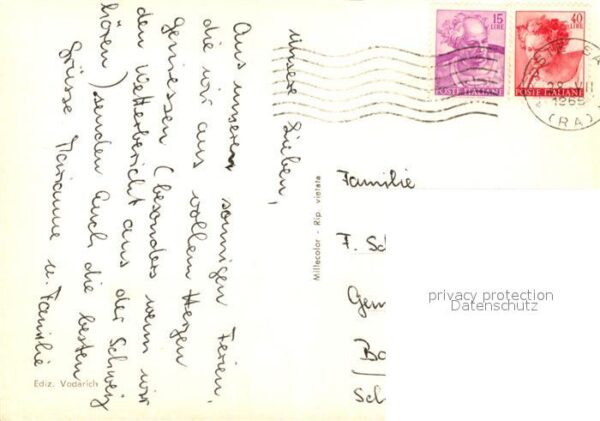 unsere Lieben,
Aus unseren sonnigen Ferien,
die wir aus vollem Herzen
geniessen (besonders wenn wir
den Wetterbericht aus der Schweiz
hören) senden Euch die besten
Grüsse Marianne u. Familie
Ediz. Vodarich
Millecolor - Rip. vietata
15
LIRE
POSTE ITALIANE
40
LIRE
POSTE ITALIANE
1965
(RA)
Familie
F. Sch
Gem
Ba
Sch
privacy protection
Datenschutz